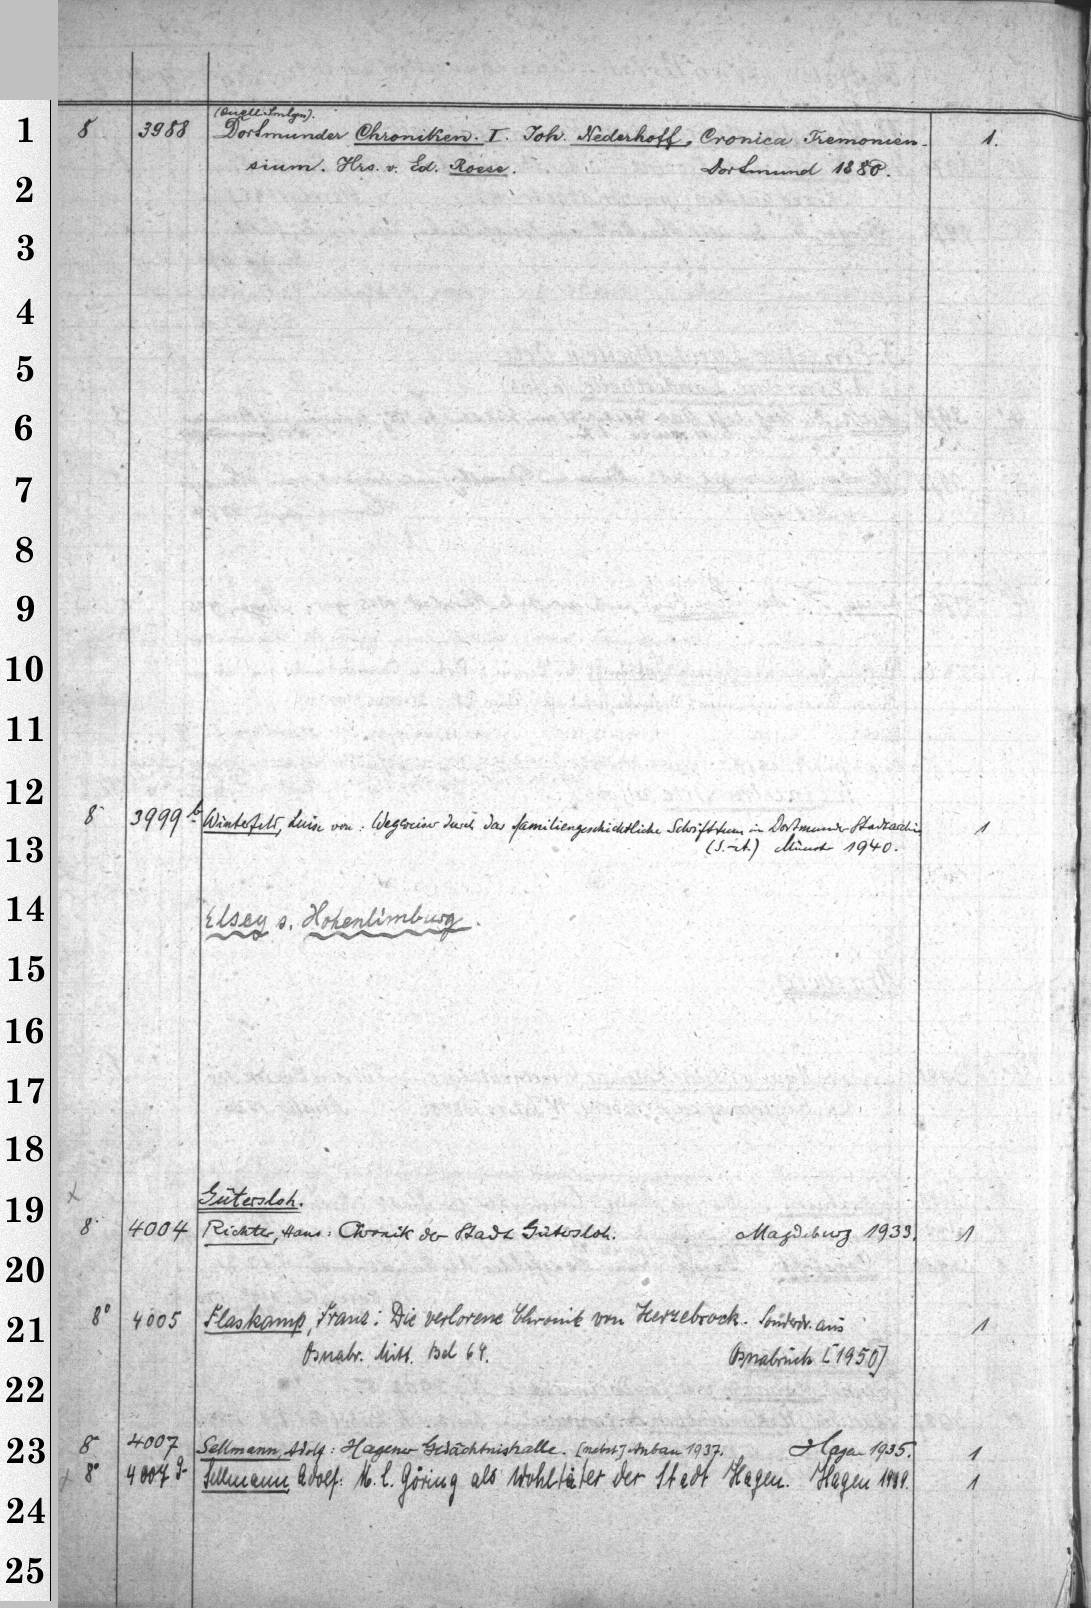 1
2
3
4
5
6
7
8
9
10
11
12
13
14
15
16
17
18
19
20
21
22
23
24
25
(Quell. Smlgn).
8 3988 Dortmunder Chroniken. I. Joh. Nederhoff, Cronica Tremonien- 1.
sium. Hrs. v. Ed. Roese. Dortmund 1880.
8 3999 b Winterfeld, Luise von: Wegweiser durch das familiengeschichtliche Schrifttum im Dortmunder Stadtarchiv 1
(S.-A.) Münster 1940.
Elsey s. Hohenlimburg.
x Gütersloh.
8 4004 Richter, Hans: Chronik der Stadt Gütersloh. Magdeburg 1933. 1
8° 4005 Flaskamp, Franz: Die verlorene Chronik von Herzebrock. Sonderdr. aus 1
Osnabr. Mitt. Bd 64. Osnabrück [1950]
8 4007 Sellmann, Adolf: Hagener Gedächtnishalle. [nebst] Anbau 1937. Hagen 1935. 1
x 8° 4007 Sellmann, Adolf: M. C. Göring als Wohltäter der Stadt Hagen. Hagen 1 1